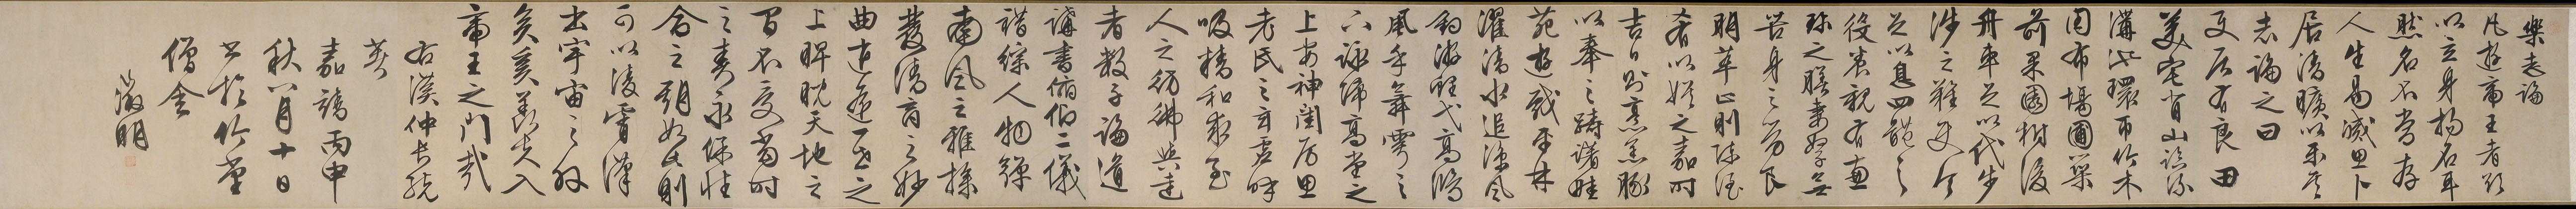 樂志論
凡遊帝王者欲
以立身揚名耳
然名不常存
人生易滅思卜
居清曠以樂其
志論之曰
使居有良田
美宅背山臨流
溝池環帀竹木
周布場圃築
前果園樹後
舟車足以代步
涉之難使令
足以息四體之
役養親有兼
珍之膳妻孥無
苦身之勞良
朋萃止則陳酒
肴以娛之嘉時
吉日則烹羔豚
以奉之躊躇畦
苑遊戲平林
濯清水追涼風
釣游鯉弋高鴻
風乎舞雩之
下詠歸高堂之
上安神閨房思
老氏之玄虛呼
吸精和求至
人之彷彿與達
者數子論道
講書俯仰二儀
錯綜人物彈
南風之雅操
發清商之妙
曲逍遙一世之
上睥睨天地之
間不受當時
之責永保性
命之期如是則
可以凌霄漢
出宇宙之外
矣奚羡夫入
帝王之門哉
右漢仲長統
著
嘉靖丙申
秋八月十日
書於竹堂
僧舍
徵明